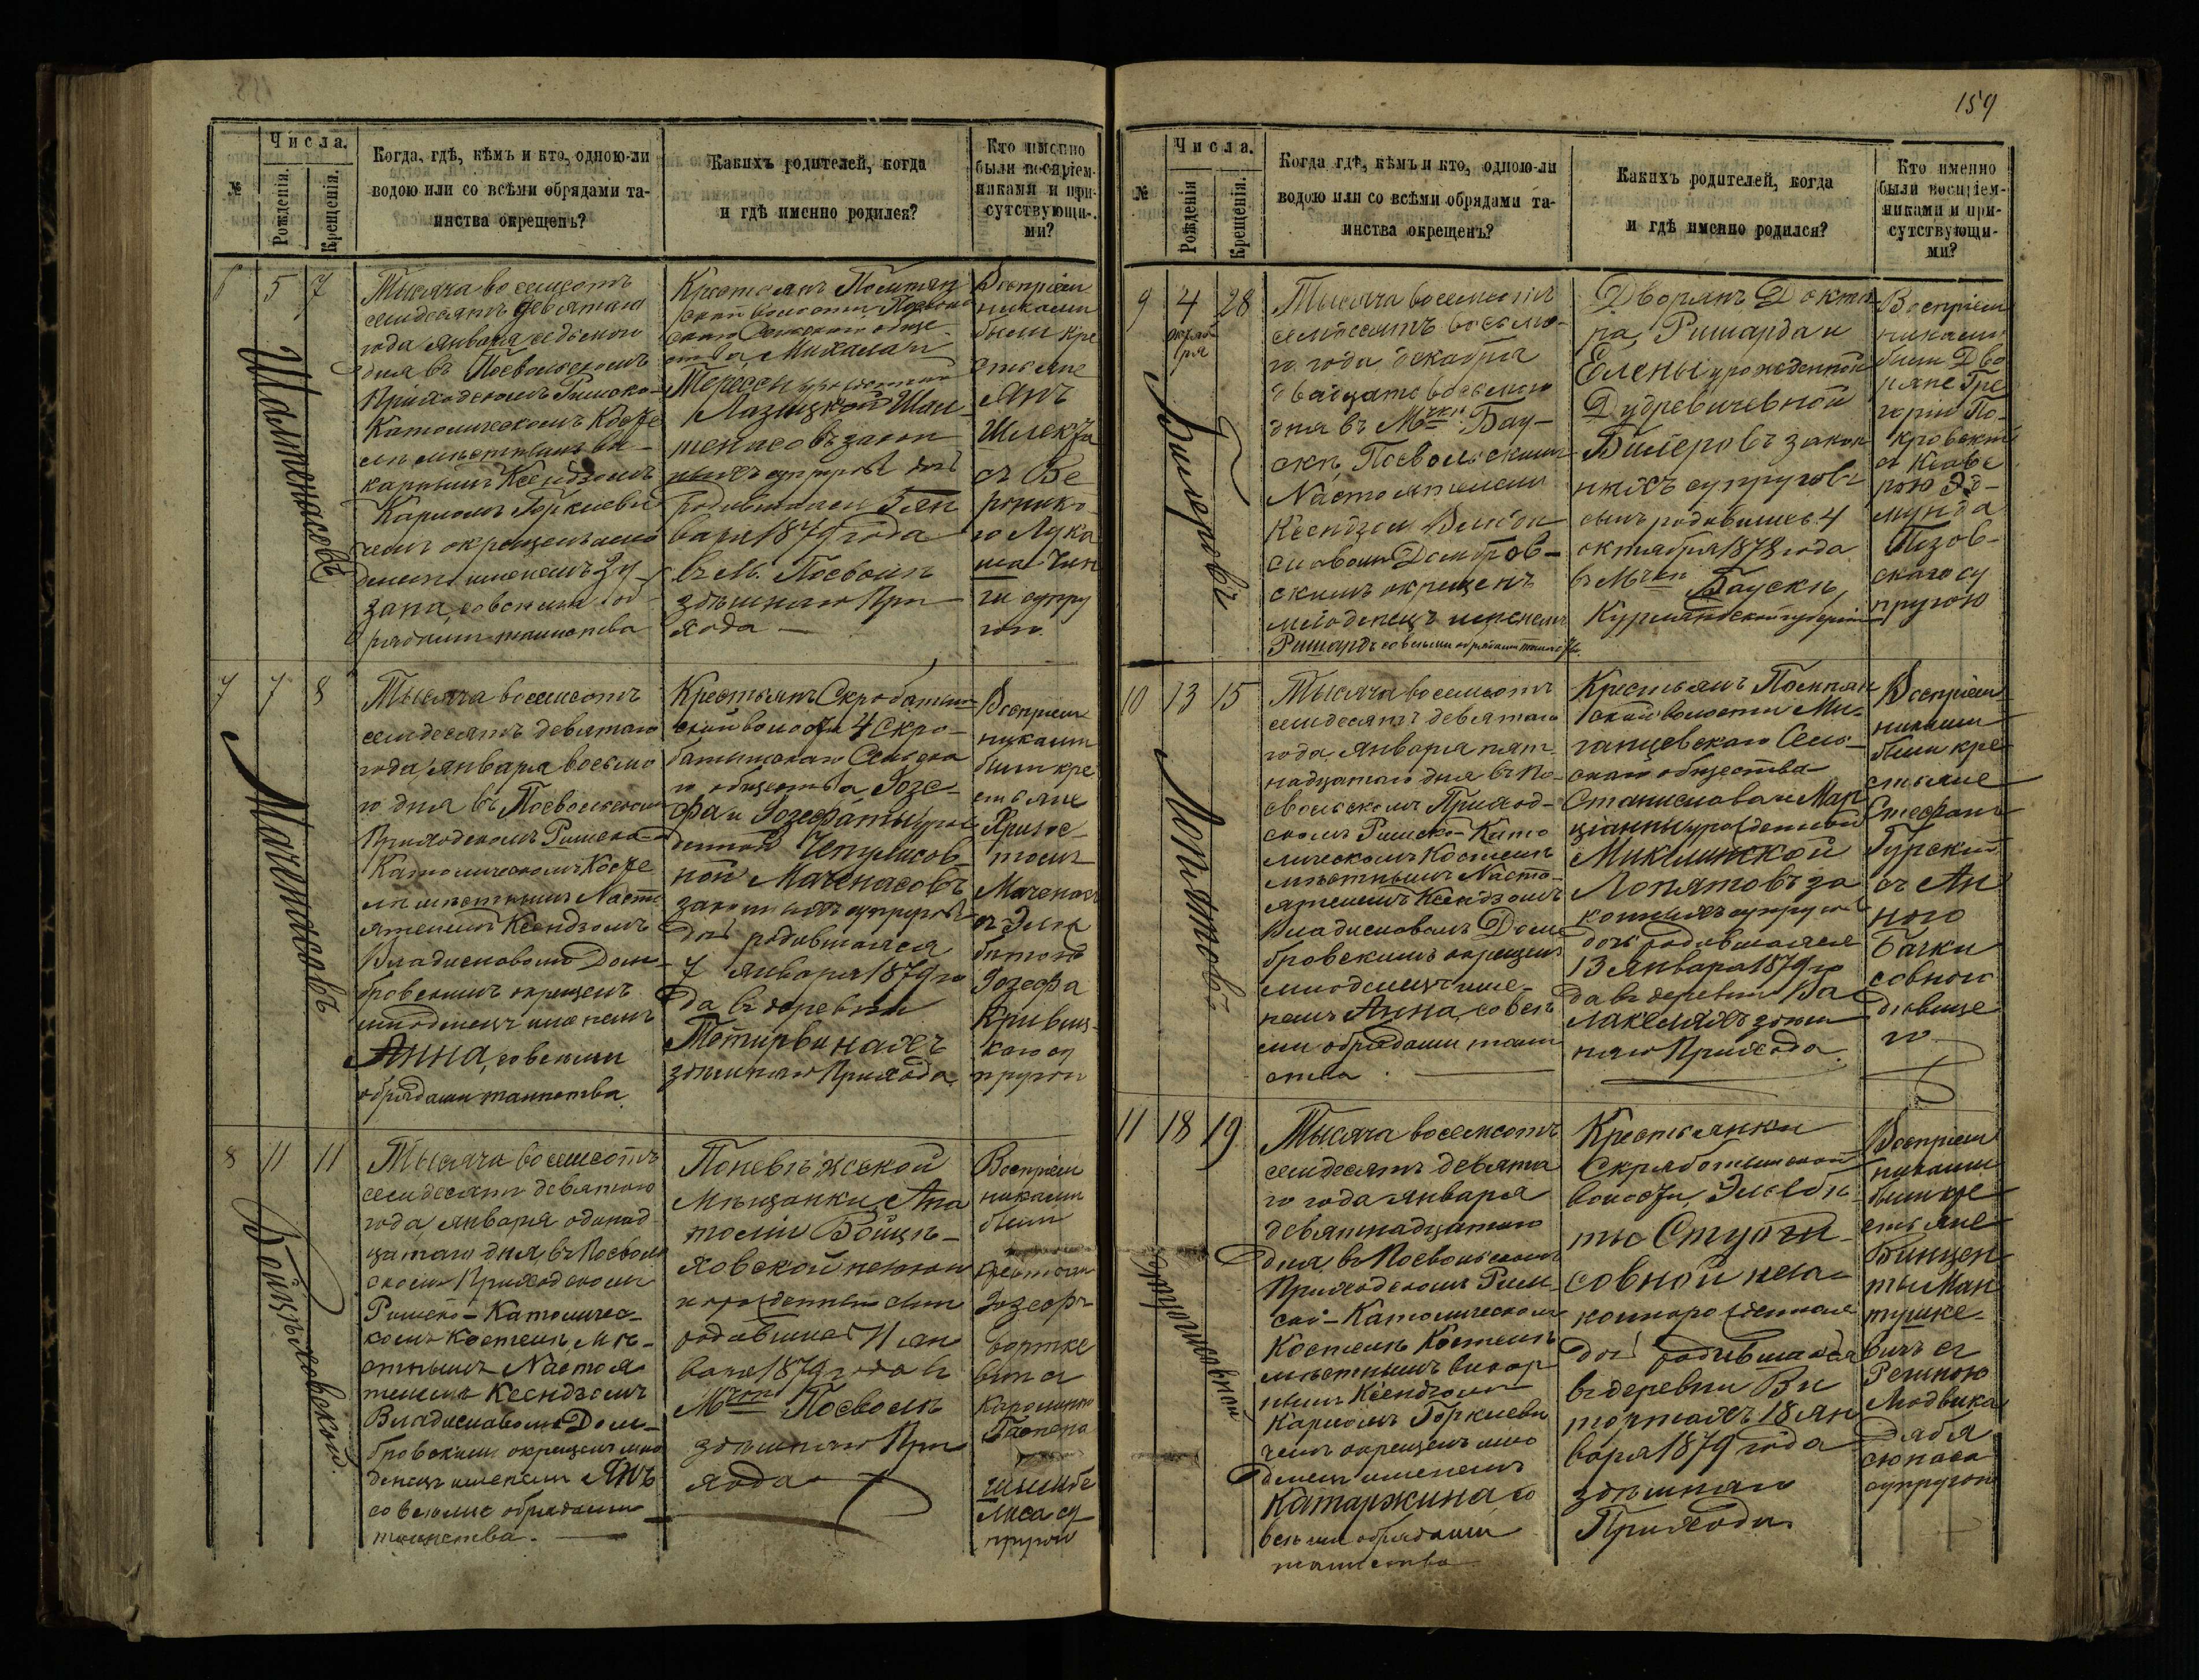 159
Числа.
№
Рожденія.
Крещенія.
Когда, гдѣ, кѣмъ и кто, одною-ли
водою или со всѣми обрядами та-
инства окрещенъ?
Какихъ родителей, когда
и гдѣ именно родился?
Кто именно
были воспріем-
никами и при-
сутствующи-
ми?
5 7
Тысяча восемсотъ
семдесятъ девятаго
года января седьмого
дня въ Посвольскомъ
Приходскомъ Римско-
Католическомъ Косте
лѣ мѣстнымъ ви-
карнымъ Ксендзомъ
Карломъ Горкеви
чемъ окрещенъ мла
денец именемъ Зу-
занна, со всѣми об-
рядами таинства
скаго Сельскаго обще-
ства Михала и
Терессы урожденной
Лазицкой Шам
тенасовъ закон
ныхъ супруговъ дочь
родившаяся 5 Ян
варя 1879 года
въ М. Посволѣ
здѣшняго При
хода —
Воспріем
никами
были кре
стьяне
Янъ
съ Ве
роники
ю Лука
супру
гою.
7 7 8
Маченасовъ
Тысяча восемсотъ
семдесятъ девятаго
года, января восьмо
го дня въ Посвольскомъ
Приходскомъ Римско-
Католическомъ Косте
лѣ мѣстнымъ Насто
ятелемъ Ксендзомъ
Владиславомъ Дом-
бровскимъ окрещенъ
младенецъ именемъ
Анна, со всѣми
обрядами таинства.
Крестьянъ Скробатын
ской волости Скро-
батынскаго Сельска
го общества Юзе-
фа и Юзефаты урож
денной Чепулисов-
ной Маченасовъ
законныхъ супруговъ
дочь родившаяся
7 января 1879 го
да въ деревни
Тетирвинахъ
здѣшняго Прихода.
Воспріем
никами
были кре
стьяне
Маченасъ
съ Эльж
бетою
Юзефа
Кривиц-
каго су
пругою
8 11 11
Войцѣховской.
Тысяча восемсотъ
семдесятъ девятаго
года, января одинад
цатаго дня, въ Посволь
скомъ Приходскомъ
Римско-Католичес-
комъ Костелѣ, мѣ-
стнымъ Настоя
телемъ Ксендзомъ
Владиславомъ Дом-
бровскимъ окрещенъ мла
денецъ именемъ Янъ
со всѣми обрядами
таинства. —
Поневѣжской
Мѣщанки Ана
толіи Войцѣ-
ховской незакон
норожденный сынъ
родившійся 11 ян
варя 1879 года въ
Посволѣ
здѣшняго При
хода
Воспріем
никами
были
крестьяне
Юзефъ
съ
Каролиною
Гаспера
су
пругою
Числа.
№
Рожденія
Крещенія.
Когда гдѣ, кѣмъ и кто, одною-ли
водою или со всѣми обрядами та-
инства окрещенъ?
Какихъ родителей, когда
и гдѣ именно родился?
Кто именно
были воспріем-
никами и при-
сутствующи-
ми?
9 4 28
октяб
ря
Билеровъ
Тысяча восемсотъ
семдесятъ восьмо-
го года декабря
двадцать восьмого
дня въ Мчкѣ Бау-
скѣ, Посвольскимъ
Настоятелемъ
Ксендзомъ Влади-
славомъ Домбров-
скимъ окрещенъ
младенецъ именемъ
Ришардъ со всѣми обрядами таинства.
Дворянъ Докто
ра, Ришарда и
Елены урожденной
Дудревичевной
Билеровъ закон
ныхъ супруговъ
сынъ родившійся 4
октября 1878 года
въ Мчкѣ Баускѣ
Курляндской губерніи
Воспріем
никами
были Дво
ряне Гре
горій По-
кровскій
съ Ксаве
рою Эд-
мунда
скаго су
пругою
10 13 15
Лопатовъ
Тысяча восемсотъ
семдесятъ девятаго
года, Января пят
надцатаго дня въ По-
свольскомъ Приход-
скомъ Римско-Като
лическомъ Костелѣ
мѣстнымъ Насто-
ятелемъ Ксендзомъ
Владиславомъ Дом
бровскимъ окрещенъ
младенецъ име-
немъ Анна, со всѣ
ми обрядами таин
ства.
ской волости Ми-
ганцевскаго Сель-
скаго общества
Станислава и Мар
ціанны урожденной
Миклинской
Лопатовъ за
конныхъ супруговъ
дочь родившаяся
13 Января 1879 го
да въ деревни Ва
лакеляхъ здѣш
няго Прихода.
Воспріем
никами
были кре
стьяне
Стефанъ
Гурскій
съ Ан
ною
Бачки
совною
дѣвице
ю
11 18 19
Тысяча восемсотъ
семдесятъ девята
го года января
девятнадцатаго
дня, въ Посвольскомъ
Приходскомъ Рим-
ско-Католическомъ
Костелѣ Костелѣ
мѣстнымъ викар
нымъ Ксендзомъ
Карломъ Горкеви
чемъ окрещенъ мла
денецъ именемъ
Катаржина со
всѣми обрядами
таинства
Крестьянки
Скрабатынской
волости, Эльжбѣ-
ты
совной неза-
коннорожденная
дочь родившаяся
въ деревни Ви
точтахъ 18 ян
варя 1879 года
здѣшняго
Прихода
Воспріем
никами
были кре
стьяне
Винцен
тый Ман
тушке-
вичъ съ
Людвика
супругою